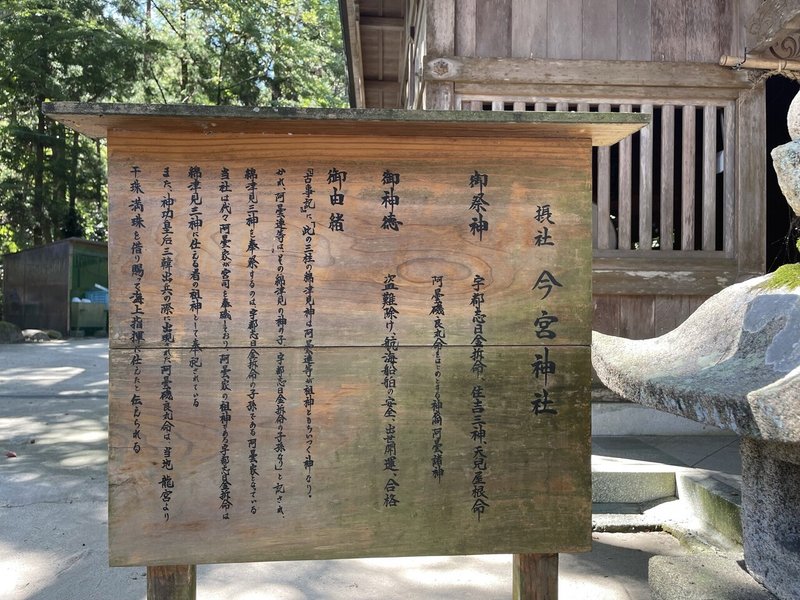 摂社 今宮神社
御祭神 宇都志日金拆命、住吉三神、天兒屋根命
阿曇磯良丸命をはじめとする神裔阿曇諸神
御神徳 盗難除け、航海船舶の安全、出世開運、合格
御由緒
『古事記』に、「此の三柱の綿津見神は、阿曇連等が祖神ともちいつく神なり。
かれ、阿曇連等は、その綿津見の神の子、宇都志日金拆命の子孫なり」と記され、
綿津見三神を奉祭するのは宇都志日金拆命の子孫である阿曇家となっている
当社は代々阿曇家が宮司を奉職しており、阿曇家の祖神である宇都志日金拆命は
綿津見三神に仕える者の祖神として奉祀されている
また、神功皇后三韓出兵の際に出現された阿曇磯良丸命は、当地 龍宮より
干珠満珠を借り賜って海上指揮を任したと伝えられる